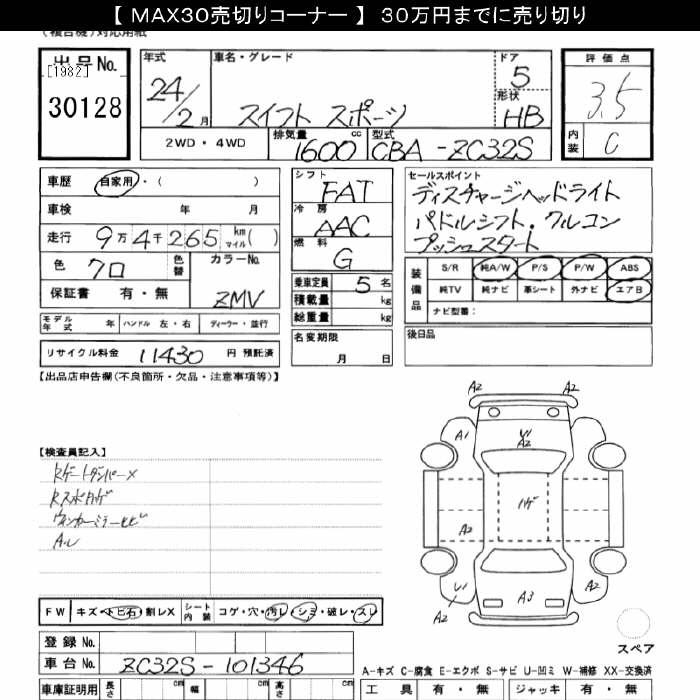 【 MAX30売切りコーナー 】 30万円までに売り切り
(複合機)対応用紙
出品No.
[1982]
30128
年式
24/2月
車名・グレード
スイフト スポーツ
ドア
5
形状
HB
評価点
3.5
内装
C
2WD・4WD
排気量
1600 cc
型式
CBA-ZC32S
車歴 自家用・( )
車検 年 月
走行 9万4千265 km マイル( )
色 クロ 色替
カラーNo.
ZMV
保証書 有・無
モデル年式 年 ハンドル 左・右 ディーラー・並行
リサイクル料金 11430 円 預託済
シフト
FAT
冷房
AAC
燃料
G
乗車定員 5 名
積載量 kg
総重量 kg
名変期限
月 日
セールスポイント
ディスチャージヘッドライト
パドルシフト、クルコン
プッシュスタート
装備品
S/R 純A/W P/S P/W ABS
純TV 純ナビ 革シート 外ナビ エアB
ナビ型番:
後日品
【出品店申告欄(不良箇所・欠品・注意事項等)】
【検査員記入】
RゲートダンパーX
Rスポイハゲ
ウィンカーミラーヒビ
A・U
A2 A2
A1
U1
A2
ハゲ
A2
U1
A2
A3
A2
スペア
FW キズ・トビ石・割レX シート内装 コゲ・穴・汚レ・シミ・破レ・スレ
登録No.
車台No. ZC32S-101346
車庫証明用 長さ cm 幅 cm 高さ cm
A-キズ C-腐食 E-エクボ S-サビ U-凹ミ W-補修 XX-交換済
工具 有・無 ジャッキ 有・無